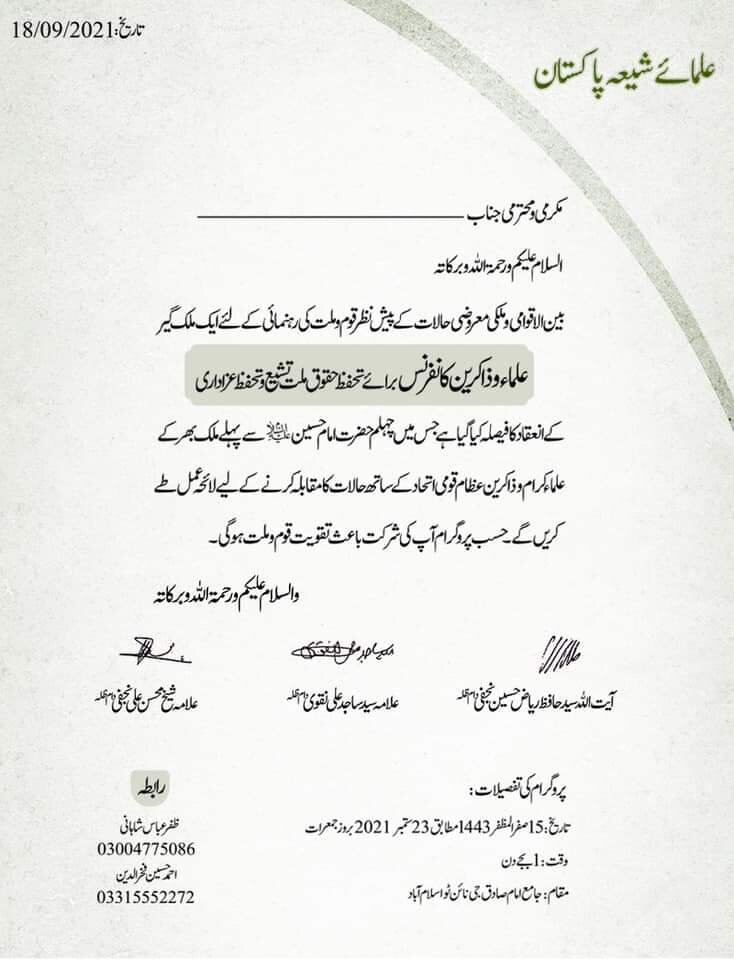 تاریخ:18/09/2021
علمائے شیعہ پاکستان
مکرمی و محترمی جناب ــــــــــــــــــــــــــــــــ
السلام علیکم ورحمۃ اللہ وبرکاتہ
بین الاقوامی و ملکی معروضی حالات کے پیش نظر قوم و ملت کی رہنمائی کے لئے ایک ملک گیر
علماء و ذاکرین کانفرنس برائے تحفظ حقوق ملت تشیع و تحفظ عزاداری
کے انعقاد کا فیصلہ کیا گیا ہے جس میں چہلم حضرت امام حسین علیہ السلام سے پہلے ملک بھر کے
علماء کرام و ذاکرین عظام قومی اتحاد کے ساتھ حالات کا مقابلہ کرنے کے لیے لائحہ عمل طے
کریں گے۔ حسب پروگرام آپ کی شرکت باعث تقویت قوم و ملت ہوگی۔
والسلام علیکم ورحمۃ اللہ وبرکاتہ
آیت اللہ سید حافظ ریاض حسین نجفی دام ظلہ
علامہ سید ساجد علی نقوی دام ظلہ
علامہ شیخ محسن علی نجفی دام ظلہ
پروگرام کی تفصیلات:
تاریخ: 15 صفر المظفر 1443 مطابق 23 ستمبر 2021 بروز جمعرات
وقت: 1 بجے دن
مقام: جامع امام صادق جی نائن ٹو اسلام آباد
رابطہ
ظفر عباس شہانی
03004775086
احمد حسین فخرالدین
03315552272